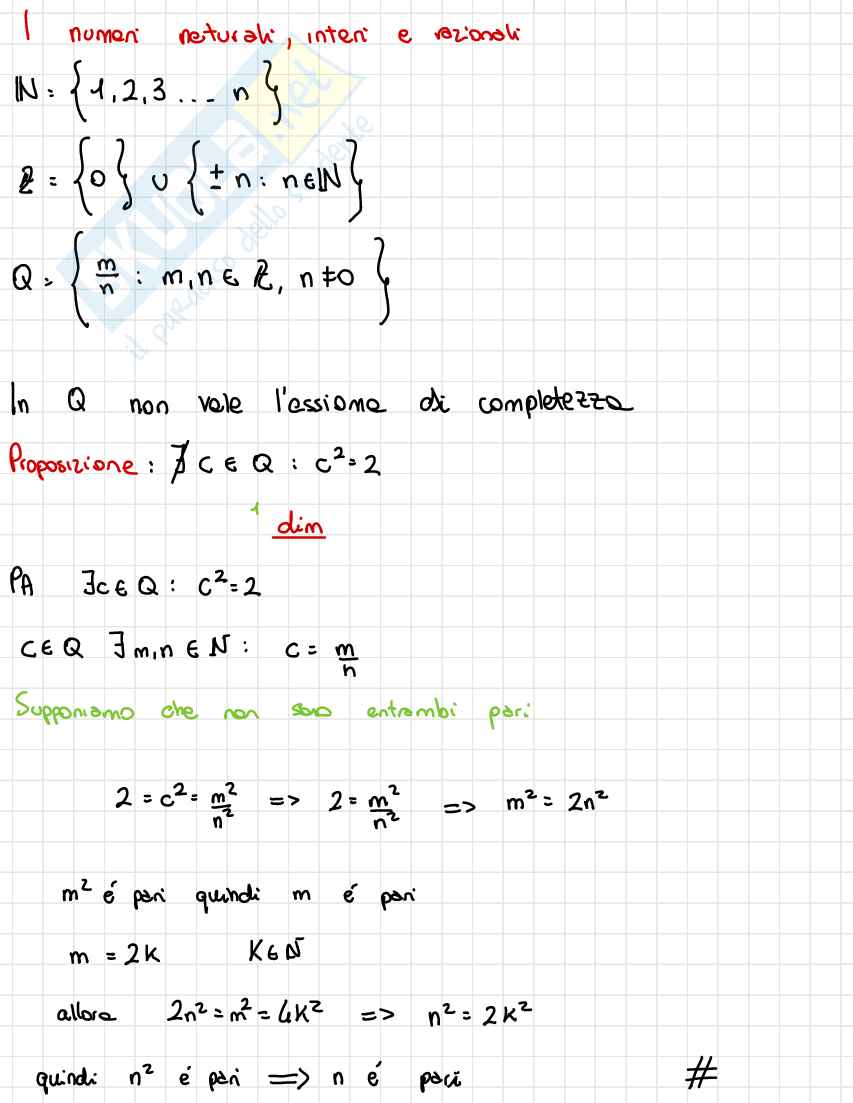 I numeri naturali, interi e razionali
ℕ = {1, 2, 3 ... n}
ℤ = {0} ∪ {± n : n ∈ ℕ}
Q = {m/n : m, n ∈ ℤ, n ≠ 0}
SKUOLA.net
il paradiso dello studente
In Q non vale l'assioma di completezza
Proposizione : ∄ c ∈ Q : c² = 2
1
dim
PA ∃ c ∈ Q : c² = 2
c ∈ Q ∃ m, n ∈ N : c = m/n
Supponiamo che non sono entrambi pari
2 = c² = m²/n² => 2 = m²/n² => m² = 2n²
m² é pari quindi m é pari
m = 2k k ∈ N
allora 2n² = m² = 4k² => n² = 2k²
quindi n² é pari => n é pari #